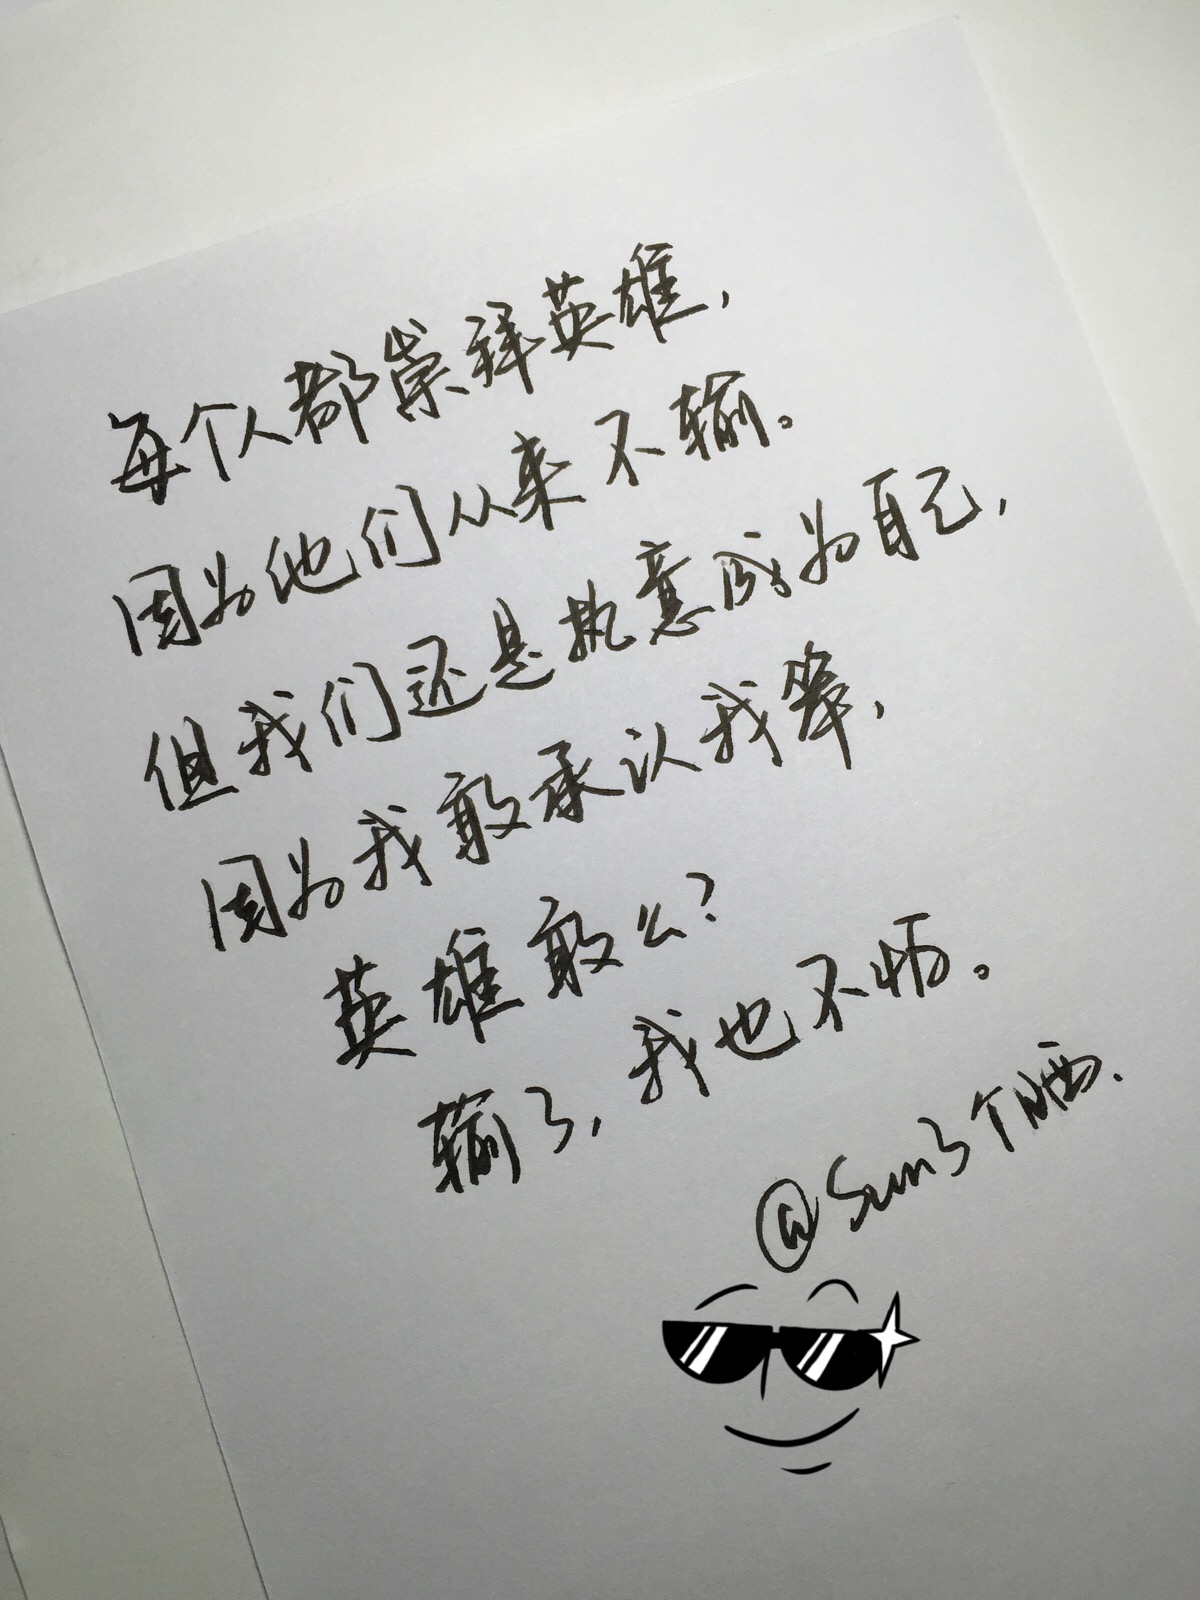 每个人都崇拜英雄，
因为他们从来不输。
但我们还是执意成为自己，
因为我敢承认我笨，
英雄敢么？
输了，我也不怕。
@Sun3个N西.